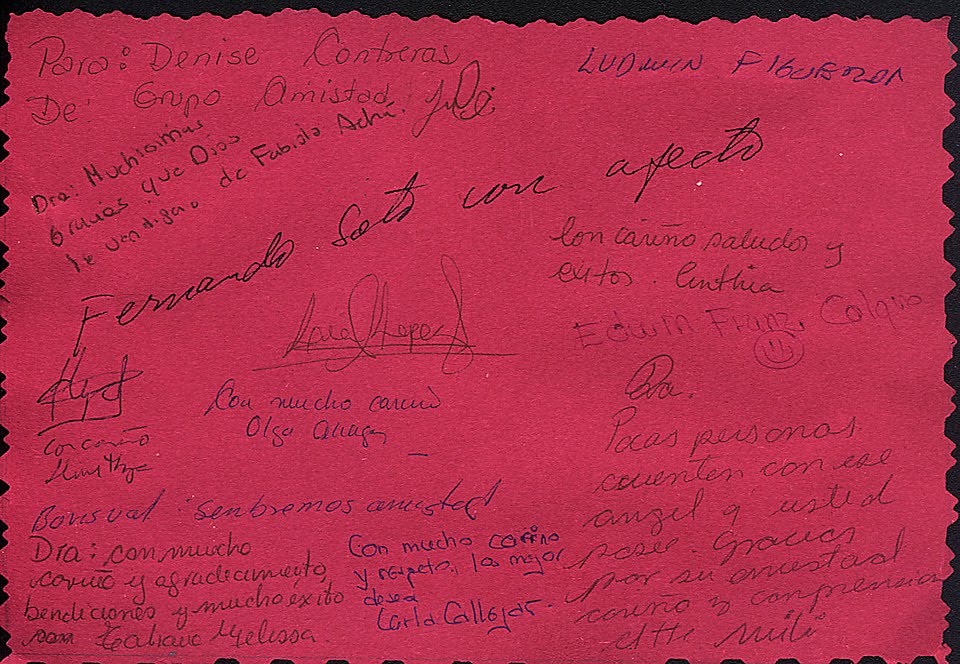 Para: Denise Contreras
De: Grupo Amistad
LUDWIN FIGUEROA
Dra: Muchisimas
gracias que Dios
le vendiga.
de Fabiola Achá.
Fernando Soto con afecto
Con cariño saludos y
exitos. Cinthia
Edwin Franz. Colque
López
Con cariño
Con mucho cariño
Olga
Dra.
Pocas personas
cuenten con ese
angel q usted
posee. Gracias
por su amistad
cariño y comprension
Atte Mili
Senbremos amistad
Dra: con mucho
cariño y agradecimiento,
bendiciones y mucho exito
Melissa.
Con mucho cariño
y respeto, lo mejor
desea
Carla Callejas.